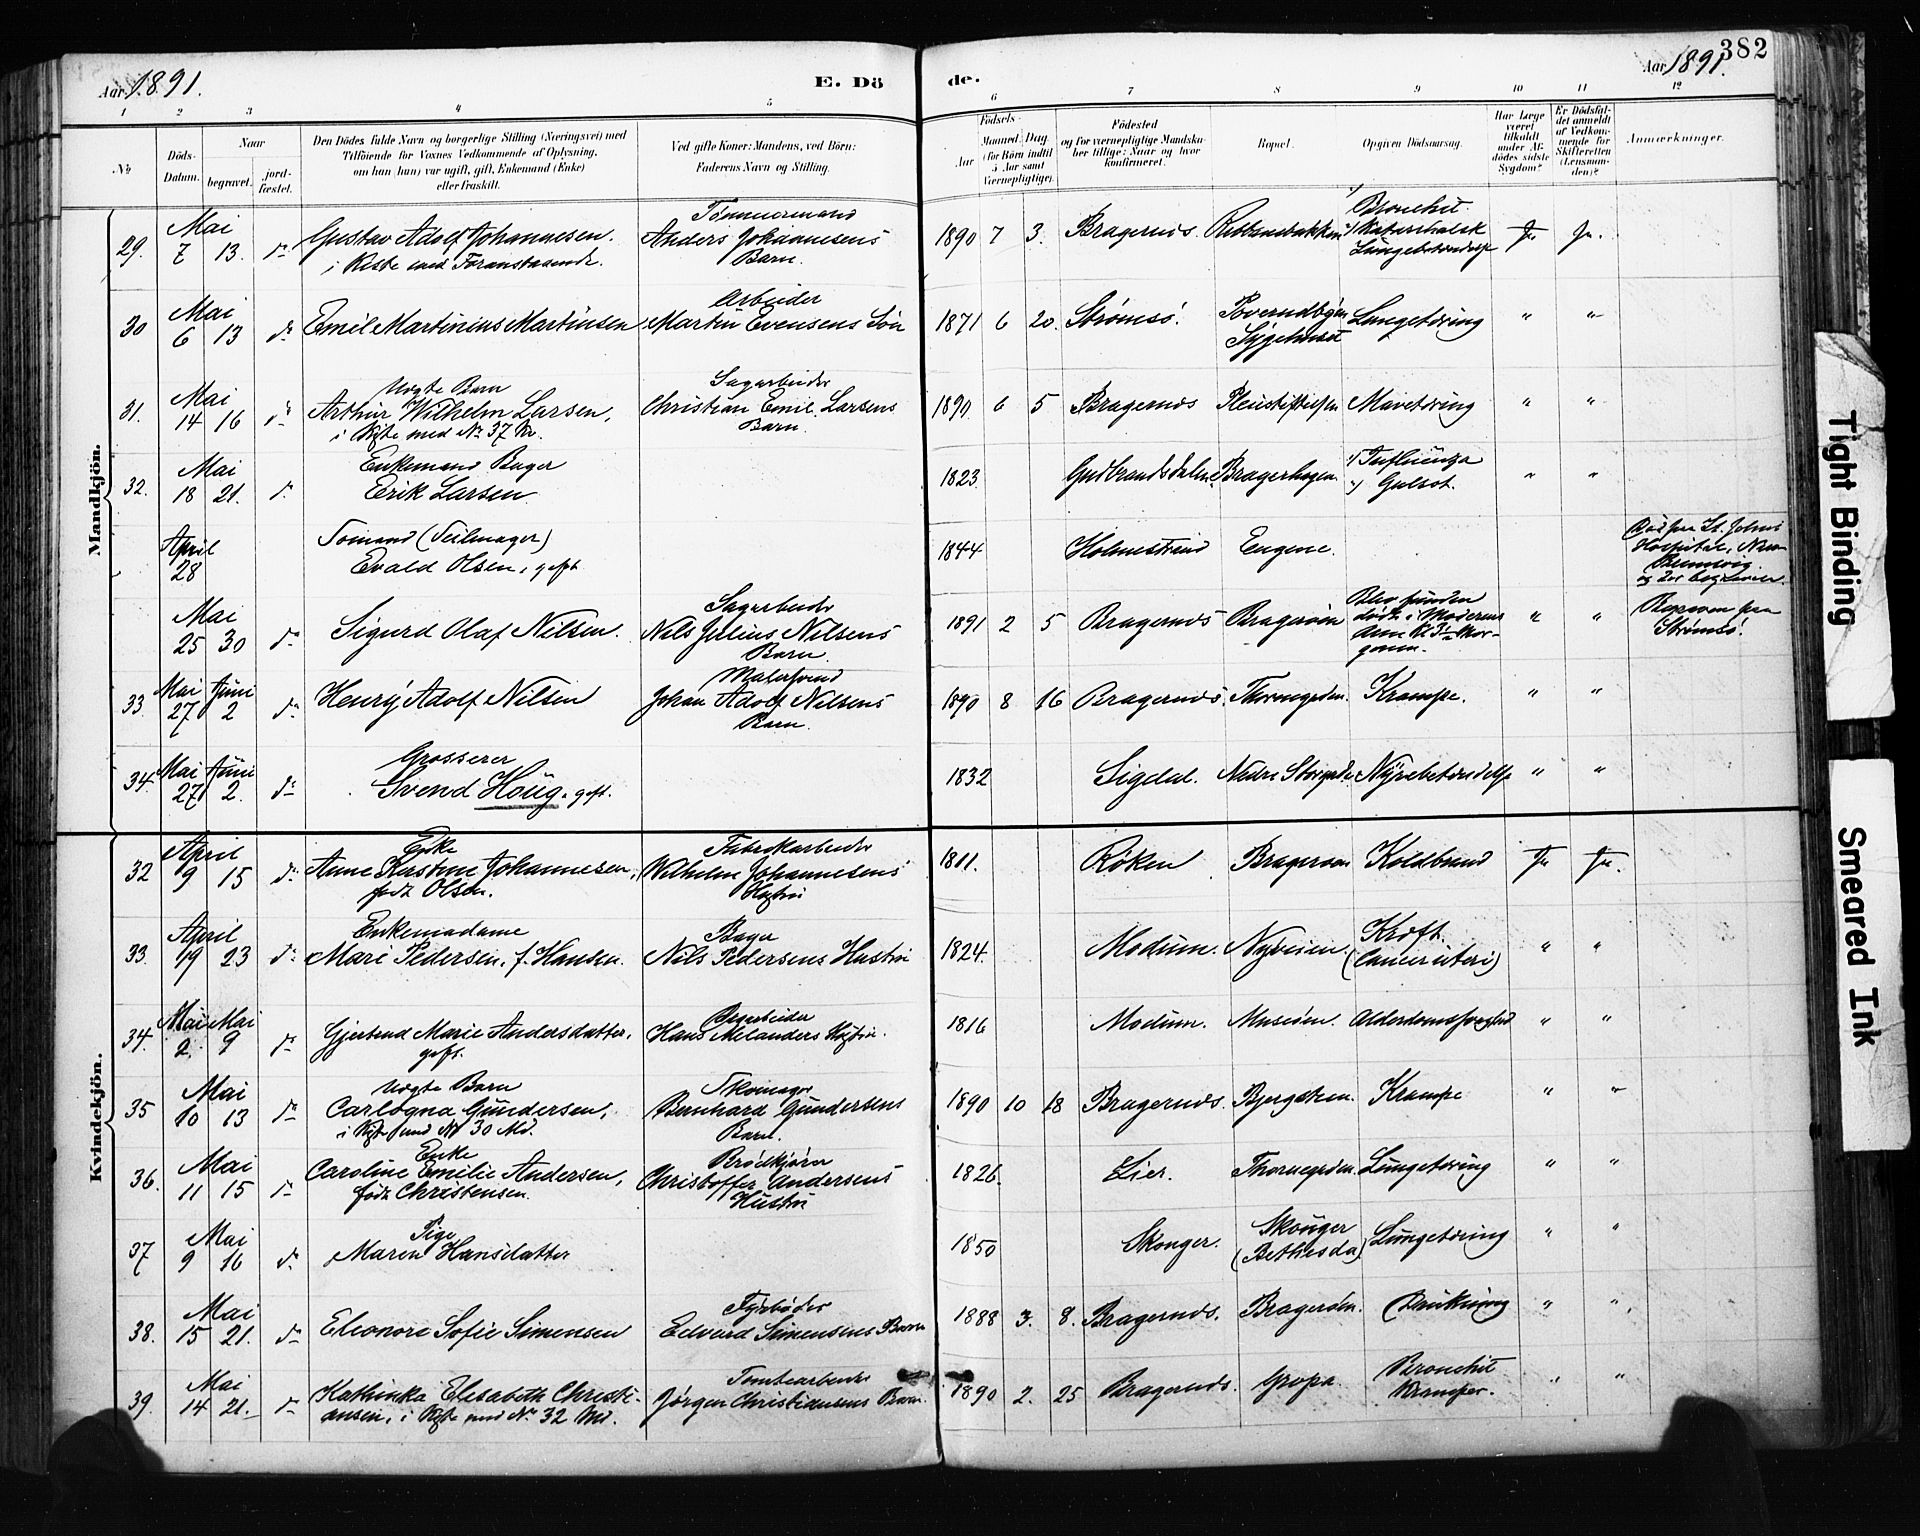 382
Aar 1891.
E. Dö
de.
Aar 1891.
1 2 3 4 5 6 7 8 9 10 11 12
No.
Döds-Datum.
Naar
begravet.
jord-fæstet.
Den Dödes fulde Navn og borgerlige Stilling (Næringsvei) med
Tilföiende for Voxnes Vedkommende af Oplysning,
om han (hun) var ugift, gift, Enkemand (Enke)
eller fraskilt.
Ved gifte Koner: Mandens, ved Börn:
Faderens Navn og Stilling.
Födsels-
Aar
Maaned (for Börn indtil 5 Aar samt Værnepligtige).
Dag
Födested
og for værnepligtige Mandska-
ber tillige: Naar og hvor
konfirmeret.
Bopæl.
Opgiven Dödsaarsag.
Har Læge været tilkaldt under Af-dödes sidste Sygdom?
Er Dödsfal-det anmeldt af Vedkom-mende for Skifteretten (Lensman-den)?
Anmærkninger.
Mandkjön.
29. Mai 7 13. do Gustav Adolf Johannesen. i Kiste med Foranstaaende. Tømmermand Anders Johannesens Barn. 1890 7 3. Bragernes. Bronchit. Katarrhalsk Lungebetændelse Ja Ja.
30 Mai 6 13 do Emil Martinius Martinsen Arbeider Martin Evensens Søn 1871 6 20. Strømsø. Sygehuset Lungetæring " "
31. Mai 14 16 do Uægte Barn Arthur Wilhelm Larsen, i Kiste med No 37 Kv. Sagarbeider Christian Emil Larsens Barn. 1890 6 5 Bragernes Mavetæring " "
32. Mai 18 21. do Enkemand Bager Erik Larsen 1823. Gudbrandsdalen. Bragerhagen. 1) Influenza 2) Gulsot. " "
April 28 Sømand (Seilmager) Evald Olsen, gift 1844 Holmestrand Eugene.
Mai 25 30 do Sigurd Olaf Nilsen. Sagarbeider Nils Julius Nilsens Barn. 1891 2 5 Bragernes Bragerøen Blev funden død i Moderens Arm Kl. 3 1/2 Mor-genen. " " Strømsø.
33. Mai 27 Juni 2 do Henry Adolf Nilsen Malersvend Johan Adolf Nilsens Barn. 1890 8 16 Bragernes. Thornegaden. Krampe. " "
34. Mai 27 Juni 2. do Grosserer Svend Houg. gift. 1832 Sigdal. Nedre Storgade Nyrebetændelse " "
Kvindekjön.
32 April 9 15 do Enke Anne Kirstine Johannesen, født Olsen. Fabrikarbeider Wilhelm Johannesens Hustru 1811. Røken Bragerøen Koldbrand Ja Ja.
33. April 19 23 do Enkemadame Mari Pedersen, f. Hansen. Bager Nils Pedersens Hustru 1824. Modum. Nyveien. Kræft. (Cancer uteri) " "
34. Mai 2. Mai 9 do Gjertrud Marie Andersdatter, gift. Hans Melanders Hustru. 1816 Modum. Museøen. Alderdomssvaghed " "
35 Mai 10 13 do Uægte Barn Carlogna Gundersen, i Kiste med No 30 Md. Skomager Bernhard Gundersens Barn. 1890 10 18 Bragernes. Bjergsteen. Krampe " "
36. Mai 11 15 do Enke Caroline Emilie Andersen, født Christensen. Brødkjører Christoffer Andersens Hustru 1826. Lier. Thornegaden. Lungetæring " "
37 Mai 9 16 do Pige Maren Hansdatter 1850 Skouger. Skouger (Bethesda) Lungetæring " "
38. Mai 15 21. do Eleonore Sofie Simensen Fyrbøder Edvard Simensens Barn 1888 3. 8. Bragernes. Bragerøen. (Drukning) " "
39. Mai 14 21. do Kathinka Elisabeth Christi-ansen, i Kiste med No 32 Md. Tomtearbeider Jørgen Christiansens Barn. 1890 2. 25 Bragernes. Gropa. Bronchit Kramper. " "
Tight Binding
Smeared Ink